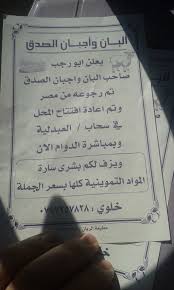 البان وأجبان الصدق
يعلن ابو رجب
صاحب البان واجبان الصدق
تم رجوعه من مصر
وتم اعادة افتتاح المحل
في سحاب / العبدلية
وبمباشرة الدوام الان
ويزف لكم بشرى سارة
المواد التموينية كلها بسعر الجملة
خلوي :